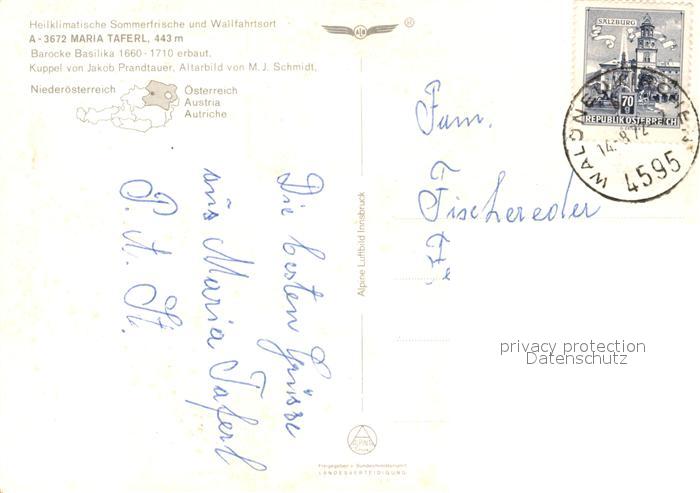 Heilklimatische Sommerfrische und Wallfahrtsort
A-3672 MARIA TAFERL, 443 m
Barocke Basilika 1660-1710 erbaut.
Kuppel von Jakob Prandtauer, Altarbild von M. J. Schmidt.
Niederösterreich
Österreich
Austria
Autriche
Die besten Grüsse
aus Maria Taferl
P. A. St.
Alpine Luftbild Innsbruck
®
SALZBURG
70
REPUBLIK ÖSTERREICH
14.-8.72
4595
Fam.
Fischereder
privacy protection
Datenschutz
Freigegeben v. Bundesministerium f.
LANDESVERTEIDIGUNG